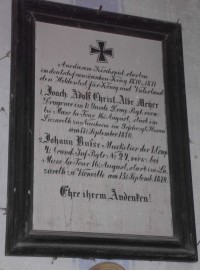 Aus diesem Kirchspiel starben
im deutsch-französischen Krieg 1870-1871
den Heldentod für König und Vaterland
1, Joach. Adolf Christ. Albr. Meyer
Dragoner im 1. Garde Drag. Regt. verw.
bei Mars la Tour 16 August, starb im
Lazareth
am 17 September 1870.
2, Johann Busse Musketier der
bei
Mars la Tour 16 August, starb im La-
zareth zu am 15 Septemb. 1870.
Ehre ihrem Andenken!